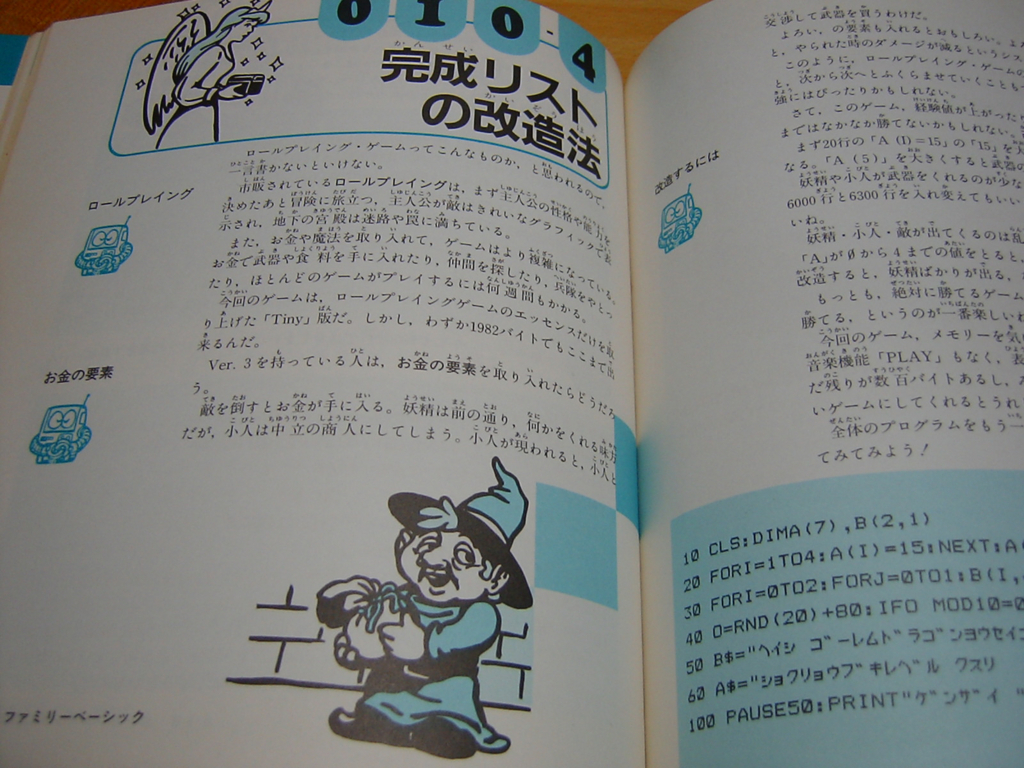 010-4
完成リスト
の改造法
ロールプレイング・ゲームってこんなものか、と思われるので、
一言書かないといけない。
ロールプレイング
市販されているロールプレイングは、まず主人公の性格や能力を
決めたあと冒険に旅立つ、主人公が敵はきれいなグラフィックで表
示され、地下の宮殿は迷路や罠に満ちている。
また、お金や魔法を取り入れて、ゲームはより複雑になっている。
お金で武器や食料を手に入れたり、仲間を探したり、兵隊をやとっ
たり、ほとんどのゲームがプレイするには何週間もかかる。
今回のゲームは、ロールプレイングゲームのエッセンスだけを取
り上げた「Tiny」版だ。しかし、わずか1982バイトでもここまで出
来るんだ。
お金の要素
Ver. 3を持っている人は、お金の要素を取り入れたらどうだろ
う。
敵を倒すとお金が手に入る。妖精は前の通り、何かをくれる味方
だが、小人は中立の商人にしてしまう。小人が現われると、小人と
ファミリーベーシック
交渉して武器を買うわけだ。
よろい、の要素も入れるとおもしろい。
と、やられた時のダメージが減るというシス
このように、ロールプレイング・ゲームの
と、次から次へとふくらませていくことも
強にはぴったりかもしれない。
さて、このゲーム、経験値が上がった
まではなかなか勝てないかもしれない。
改造するには
まず20行の「A (I)=15」の「15」を
なる。「A (5)」を大きくすると武器の
妖精や小人が武器をくれるのが少な
6000行と6300行を入れ変えてもいい
いね。
妖精・小人・敵が出てくるのは乱
「A」が0から4までの値をとると、
改造すると、妖精ばかりが出る、
もっとも、絶対に勝てるゲーム
勝てる、というのが一番楽しいね
今回のゲーム、メモリーを気
音楽機能「PLAY」もなく、表
だ残りが数百バイトあるし、
いゲームにしてくれるとうれ
全体のプログラムをもう一
てみてみよう！
10 CLS:DIMA(7),B(2,1)
20 FORI=1TO4:A(I)=15:NEXT:A(
30 FORI=0TO2:FORJ=0TO1:B(I,
40 O=RND(20)+80:IFO MOD10=0
50 B$="ヘイシ ゴーレムドラゴンヨウセイコ
60 A$="ショクリョウブキレベル クスリ
100 PAUSE50:PRINT"ゲンザイ "